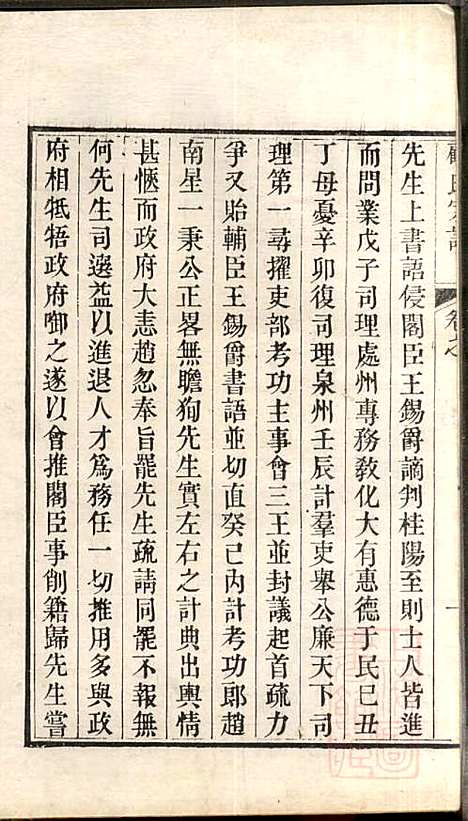 先生上書語侵閣臣王錫爵謫判桂陽至則士人皆進
而問業戊子司理處州專務敎化大有惠德于民巳丑
丁母憂辛卯復司理泉州壬辰計羣吏舉公廉天下司
理第一尋擢吏部考功主事會三王並封議起首疏力
爭又貽輔臣王錫爵書語並切直癸己內計考功郎趙
南星一秉公正畧無瞻狥先生實左右之計典出輿情
甚愜而政府大恚趙忽奉旨罷先生疏請同罷不報無
何先生司選益以進退人才爲務任一切推用多與政
府相牴牾政府啣之遂以會推閣臣事削籍歸先生嘗